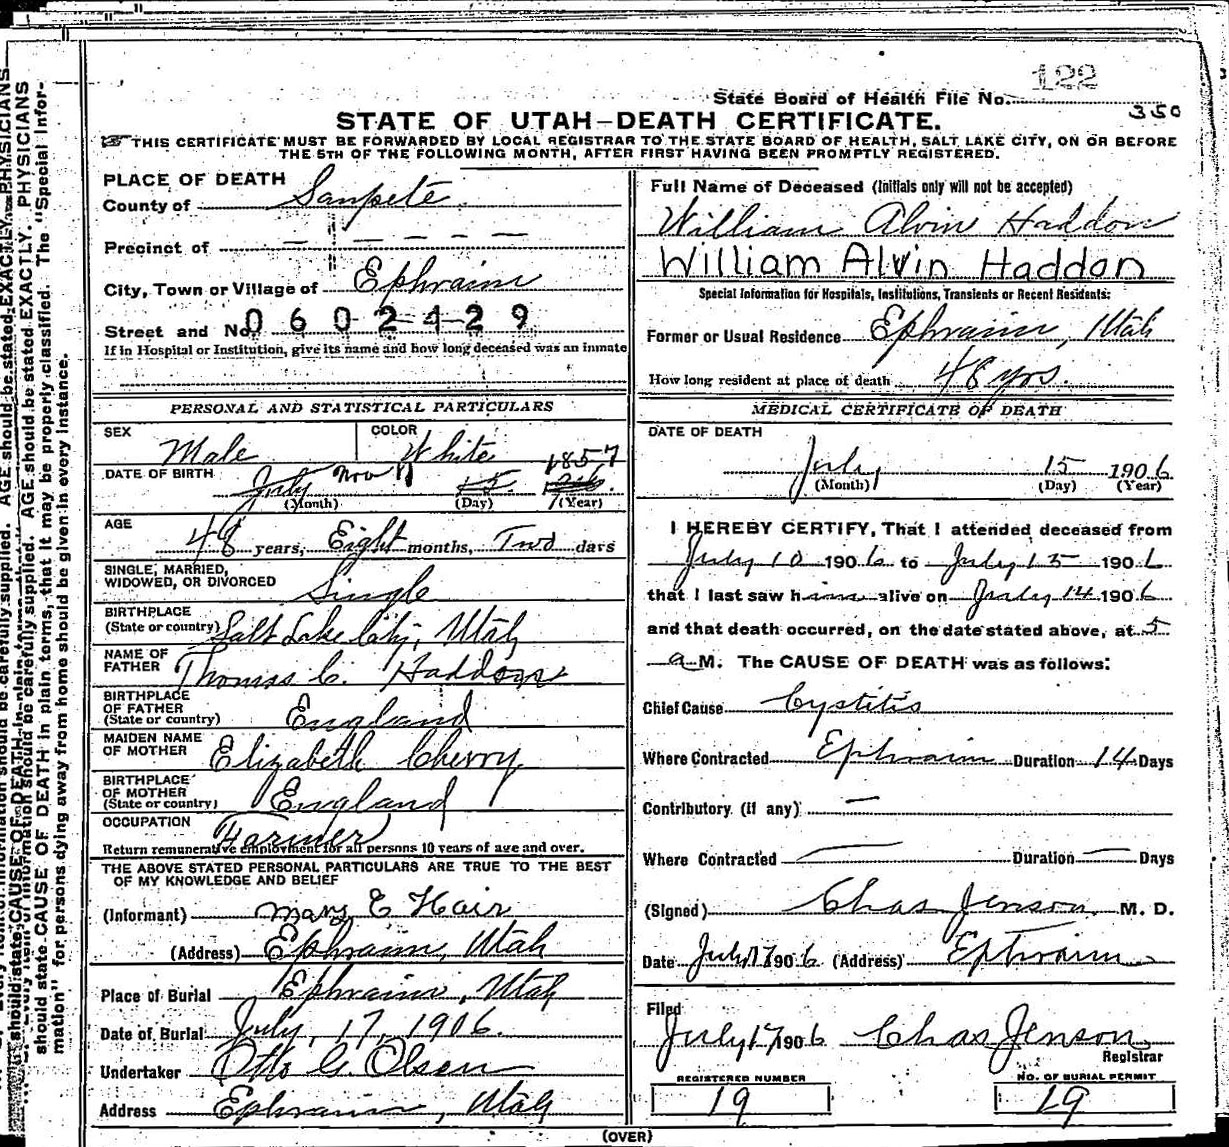 122
State Board of Health File No.
350
STATE OF UTAH—DEATH CERTIFICATE.
THIS CERTIFICATE MUST BE FORWARDED BY LOCAL REGISTRAR TO THE STATE BOARD OF HEALTH, SALT LAKE CITY, ON OR BEFORE
THE 5TH OF THE FOLLOWING MONTH, AFTER FIRST HAVING BEEN PROMPTLY REGISTERED.
PLACE OF DEATH
County of Sanpete
Precinct of — — — — —
City, Town or Village of Ephraim
Street and No. 0602429
If in Hospital or Institution, give its name and how long deceased was an inmate
PERSONAL AND STATISTICAL PARTICULARS
SEX Male
COLOR White
DATE OF BIRTH July Nov 11 15 1857
(Month) (Day) (Year)
AGE 48 years, Eight months, Two days
SINGLE, MARRIED,
WIDOWED, OR DIVORCED Single
BIRTHPLACE
(State or country) Salt Lake City, Utah
NAME OF
FATHER Thomas C. Haddon
BIRTHPLACE
OF FATHER
(State or country) England
MAIDEN NAME
OF MOTHER Elizabeth Cherry
BIRTHPLACE
OF MOTHER
(State or country) England
OCCUPATION Farmer
Return remunerative employment for all persons 10 years of age and over.
THE ABOVE STATED PERSONAL PARTICULARS ARE TRUE TO THE BEST
OF MY KNOWLEDGE AND BELIEF
(Informant) Mary E Hair
(Address) Ephraim, Utah
Place of Burial Ephraim, Utah
Date of Burial July, 17, 1906.
Undertaker Otto G. Olsen
Address Ephraim, Utah
Full Name of Deceased (Initials only will not be accepted)
William Alvin Haddon
William Alvin Haddon
Special Information for Hospitals, Institutions, Transients or Recent Residents:
Former or Usual Residence Ephraim, Utah
How long resident at place of death 48 yrs.
MEDICAL CERTIFICATE OF DEATH
DATE OF DEATH
July 15 1906
(Month) (Day) (Year)
I HEREBY CERTIFY, That I attended deceased from
July 10 1906 to July 15 1906
that I last saw him alive on July 14 1906
and that death occurred, on the date stated above, at 5
a M. The CAUSE OF DEATH was as follows:
Chief Cause Cystitis
Where Contracted Ephraim Duration 14 Days
Contributory (if any) —
Where Contracted — Duration — Days
(Signed) Chas Jenson M. D.
Date July 17 1906 (Address) Ephraim
Filed
July 17 1906 Chas Jenson
Registrar
REGISTERED NUMBER
19
NO. OF BURIAL PERMIT
19
(OVER)
should state CAUSE OF DEATH in plain terms, that it may be properly classified. The "Special Infor-
mation" for persons dying away from home should be given in every instance.